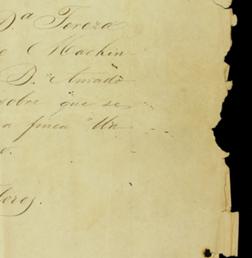 D.ª Tereza
Machin
D. Amado
sobre que se
a finca "Un